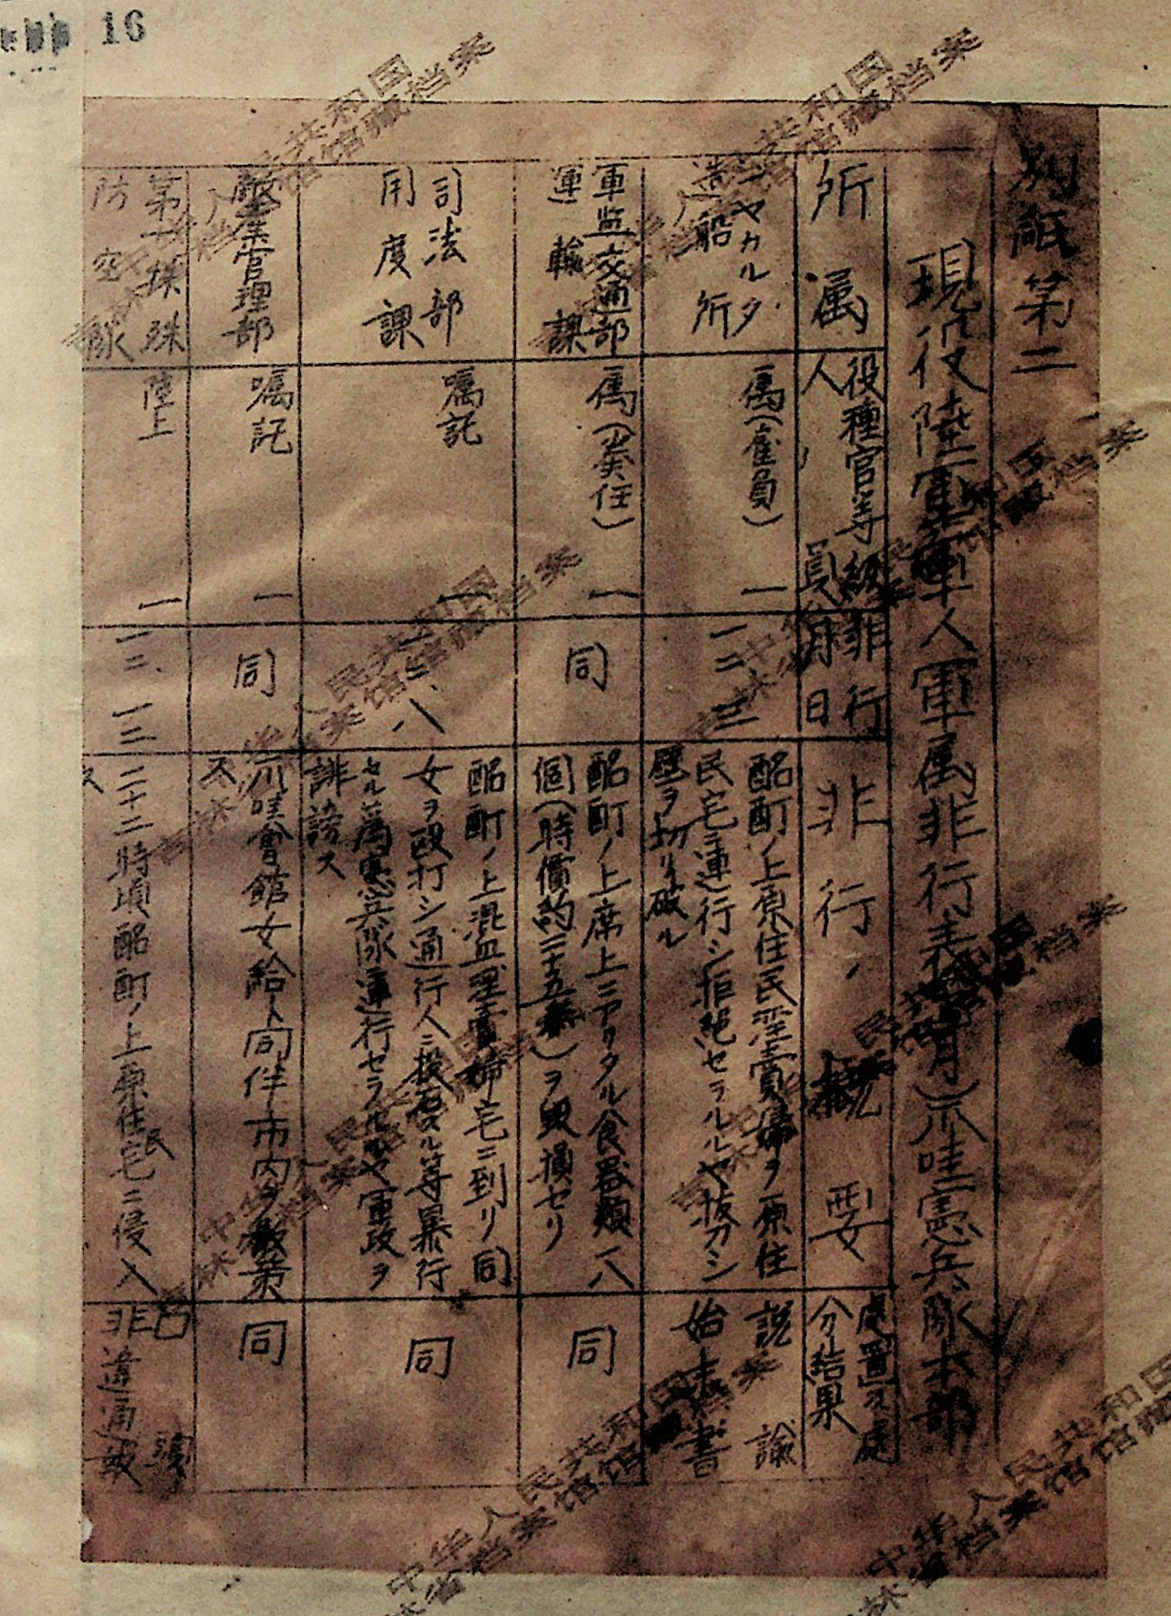 16
別紙第二
現役陸軍軍人軍属非行表(十二月)爪哇憲兵隊本部
所属
役種官等級
人員
非行
月日
非行ノ概要
處置及處
分結果
ジヤカルタ
造船所
属(雇員)
一
一二、三
酩酊ノ上原住民淫賣婦ヲ原住
民宅ニ連行シ拒絶セラルルヤ抜刀シ
壁ヲ切リ破ル
説諭
始末書
軍監交通部
運輸課
属(委任)
一
同
酩酊ノ上席上ニアリタル食器類八
個(時價約二十五盾)ヲ毀損セリ
同
司法部
用度課
嘱託
一
一二、八
酩酊ノ上混血淫賣婦宅ニ到リ同
女ヲ殴打シ通行人ニ投石スル等暴行
セル為憲兵隊ニ連行セラルルヤ軍政ヲ
誹謗ス
同
敵産管理部
嘱託
一
同
爪哇會館女給ト同伴市内ヲ散策
ス
同
第一捸殊
防空隊
陸上
一
一二、一三
二十二時頃酩酊ノ上原住民宅ニ侵入
ス
非違通報
中华人民共和国
吉林省档案馆馆藏档案